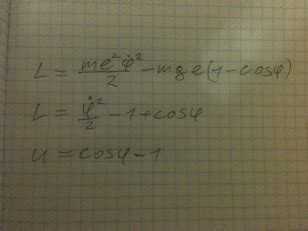 L = me²φ̇²/2 - mge(1 - cosφ)
L = φ̇²/2 - 1 + cosφ
u = cosφ - 1